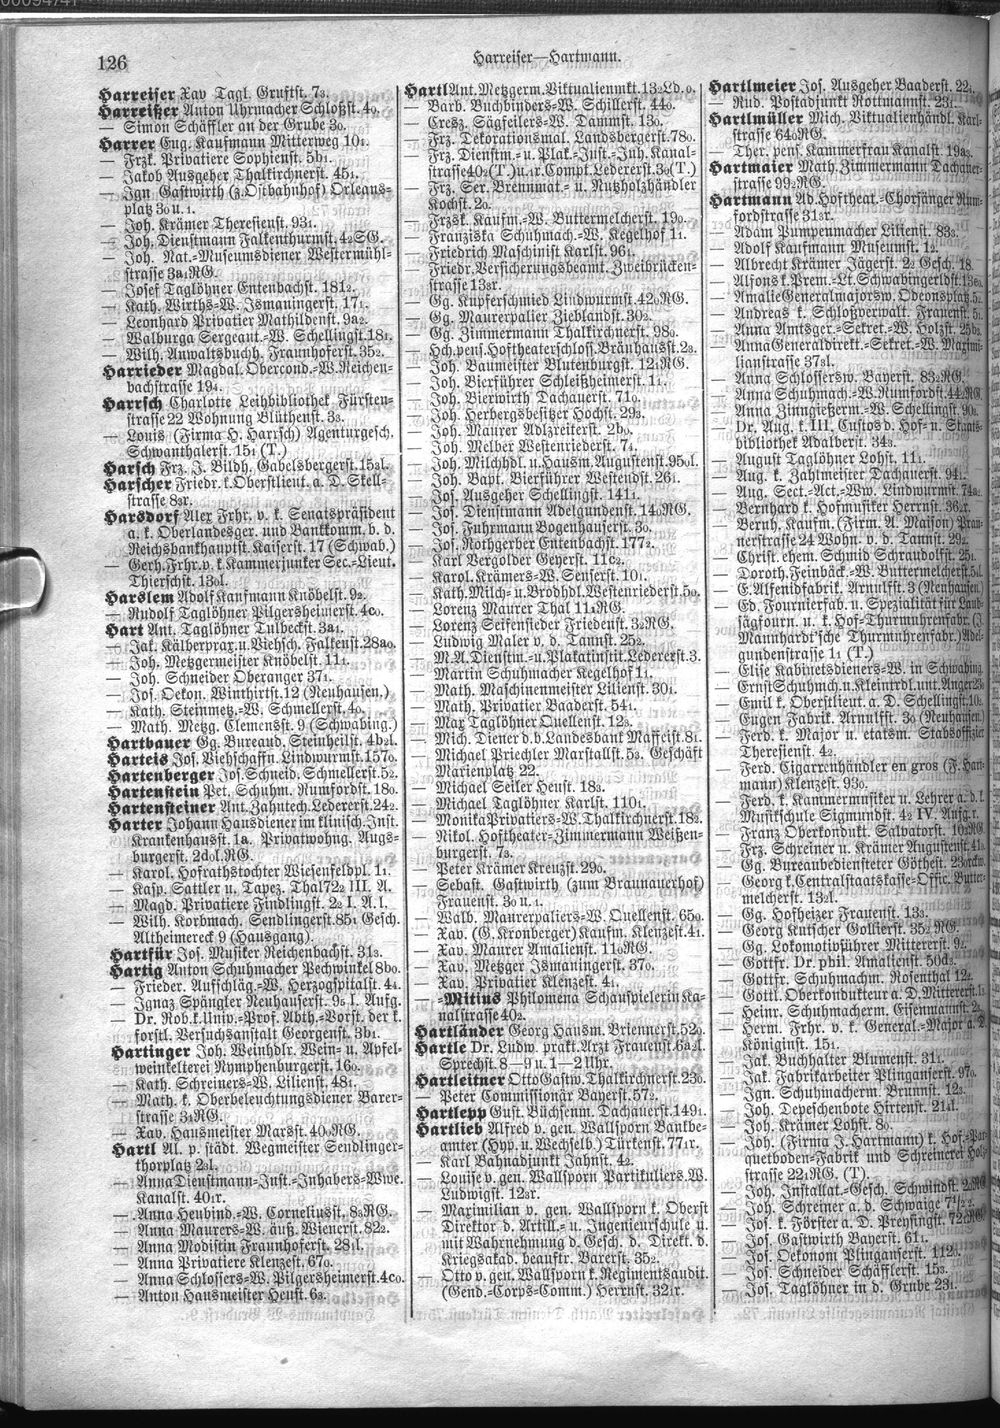 126
Harreiser—Hartmann.
Harreiser Xav Tagl. Gruftst. 73.
Harreißer Anton Uhrmacher Schloßst. 40.
— Simon Schäffler an der Grube 30.
Harrer Eug. Kaufmann Mitterweg 101.
— Frzk. Privatiere Sophienst. 5b1.
— Jakob Ausgeher Thalkirchnerst. 451.
— Ign Gastwirth (z. Ostbahnhof) Orleans-
platz 30 u. 1.
— Joh. Krämer Theresienst. 931.
— Joh. Dienstmann Falkenthurmst. 42SG.
— Joh. Nat.-Museumsdiener Westermühl-
strasse 3a1RG.
— Josef Taglöhner Entenbachst. 1812.
— Kath. Wirths-W. Ismaningerst. 171.
— Leonhard Privatier Mathildenst. 9a2.
— Walburga Sergeant.-W. Schellingst. 181.
— Wilh. Anwaltsbuchh. Fraunhoferst. 352.
Harrieder Magdal. Obercond.-W. Reichen-
bachstrasse 194.
Harrsch Charlotte Leihbibliothek Fürsten-
strasse 22 Wohnung Blüthenst. 33.
— Louis (Firma H. Harrsch) Agenturgesch.
Schwanthalerst. 151 (T.)
Harsch Frz. J. Bildh. Gabelsbergerst. 153l.
Harscher Friedr. k. Oberstlieut. a. D. Skell-
strasse 83r.
Harsdorf Alex Frhr. v. k. Senatspräsident
a. k. Oberlandesger. und Bankkomm. b. d.
Reichsbankhauptst. Kaiserst. 17 (Schwab.)
— Gerh. Frhr. v. k. Kammerjunker Sec.-Lieut.
Thierschst. 130l.
Harslem Adolf Kaufmann Knöbelst. 92.
— Rudolf Taglöhner Pilgersheimerst. 4c0.
Hart Ant. Taglöhner Tulbeckst. 3a1.
— Jak. Kälberprax. u. Viehsch. Falkenst. 28a0.
— Joh. Metzgermeister Knöbelst. 111.
— Joh. Schneider Oberanger 371.
— Jos. Oekon. Winthirst. 12 (Neuhausen.)
— Kath. Steinmetz.-W. Schmellerst. 40.
Math. Metzg. Clemensst. 9 (Schwabing.)
Hartbauer Gg. Bureaud. Steinheilst. 4b2l.
Harteis Jos. Viehschaffn. Lindwurmst. 1570.
Hartenberger Jos. Schneid. Schmellerst. 52.
Hartenstein Pet. Schuhm. Rumfordst. 180.
Hartensteiner Ant. Zahntech. Ledererst. 242.
Harter Johann Hausdiener im klinisch. Inst.
Krankenhausst. 1a. Privatwohng. Augs-
burgerst. 2d0l.RG.
— Karol. Hofrathstochter Wiesenfeldpl. 11.
— Kasp. Sattler u. Tapez. Thal 722 III. A.
— Magd. Privatiere Findlingst. 22 I. A. l.
— Wilh. Korbmach. Sendlingerst. 851 Gesch.
Altheimereck 9 (Hausgang).
Hartfür Jos. Musiker Reichenbachst. 313.
Hartig Anton Schuhmacher Pechwinkel 8b0.
— Frieder. Aufschläg.-W. Herzogspitalst. 44.
— Ignaz Spängler Neuhauserst. 95 I. Aufg.
— Dr. Rob. k. Univ.-Prof. Abth.-Vorst. der k.
forstl. Versuchsanstalt Georgenst. 3b1.
Hartinger Joh. Weinhdlr. Wein- u. Apfel-
weinkelterei Nymphenburgerst. 160.
— Kath. Schreiners-W. Lilienst. 481.
— Math. k. Oberbeleuchtungsdiener Barer-
strasse 31RG.
— Xav. Hausmeister Marsst. 400RG.
Hartl Al. p. städt. Wegmeister Sendlinger-
thorplatz 23l.
— Anna Dienstmann-Inst.-Inhabers-Wwe.
Kanalst. 401r.
— Anna Heubind.-W. Corneliusst. 83RG.
— Anna Maurers-W. äuß. Wienerst. 822.
— Anna Modistin Fraunhoferst. 281l.
— Anna Privatiere Klenzest. 670.
— Anna Schlossers-W. Pilgersheimerst. 4c0.
— Anton Hausmeister Heust. 63.
Hartl Ant. Metzgerm. Viktualienmkt. 13 Ld. 0.
— Barb. Buchbinders-W. Schillerst. 440.
— Cresz. Sägfeilers-W. Dammst. 130.
— Frz. Dekorationsmal. Landsbergerst. 780.
— Frz. Dienstm.- u. Plak.-Inst.-Inh. Kanal-
strasse 402 (T.) u. 1r. Compt. Ledererst. 30 (T.)
— Frz. Ser. Brennmat.- u. Nutzholzhändler
Kochst. 20.
— Frzsk. Kaufm.-W. Buttermelcherst. 190.
— Franziska Schuhmach.-W. Kegelhof 11.
— Friedrich Maschinist Karlst. 961.
— Friedr. Versicherungsbeamt. Zweibrücken-
strasse 133r.
— Gg. Kupferschmied Lindwurmst. 420RG.
— Gg. Maurerpalier Zieblandst. 302.
— Gg. Zimmermann Thalkirchnerst. 980.
— Hch. pens. Hoftheaterschloss. Bräuhausst. 23.
— Joh. Baumeister Blutenburgst. 121RG.
— Joh. Bierführer Schleißheimerst. 11.
— Joh. Bierwirth Dachauerst. 710.
— Joh. Herbergsbesitzer Hochst. 293.
— Joh. Maurer Adlzreiterst. 2b0.
— Joh. Melber Westenriederst. 74.
— Joh. Milchhdl. u. Hausm. Augustenst. 950l.
— Joh. Bapt. Bierführer Westendst. 261.
— Jos. Ausgeher Schellingst. 1411.
— Jos. Dienstmann Adelgundenst. 140RG.
— Jos. Fuhrmann Bogenhauserst. 30.
— Jos. Rothgerber Entenbachst. 1772.
— Karl Vergolder Geyerst. 11c2.
— Karol. Krämers-W. Senserst. 101.
— Kath. Milch- u. Brodhdl. Westenriederst. 50.
— Lorenz Maurer Thal 111RG.
— Lorenz Seifensieder Friedenst. 32RG.
— Ludwig Maler v. d. Tannst. 252.
— M. A. Dienstm.- u. Plakatinstit. Ledererst. 3.
— Martin Schuhmacher Kegelhof 11.
— Math. Maschinenmeister Lilienst. 301.
— Math. Privatier Baaderst. 541.
— Max Taglöhner Quellenst. 123.
— Mich. Diener d. b. Landesbank Maffeist. 81.
— Michael Priechler Marstallst. 53. Geschäft
Marienplatz 22.
— Michael Seiler Heust. 183.
— Michael Taglöhner Karlst. 1101.
— Monika Privatiers-W. Thalkirchnerst. 182.
— Nikol. Hoftheater-Zimmermann Weißen-
burgerst. 73.
— Peter Krämer Kreuzst. 290.
— Sebast. Gastwirth (zum Braunauerhof)
Frauenst. 30 u. 1.
— Walb. Maurerpaliers-W. Quellenst. 650.
— Xav. (G. Kronberger) Kaufm. Klenzest. 41.
— Xav. Maurer Amalienst. 110RG.
— Xav. Metzger Ismaningerst. 370.
— Xav. Privatier Klenzest. 41.
— -Mitius Philomena Schauspielerin Ka-
nalstrasse 402.
Hartländer Georg Hausm. Briennerst. 520.
Hartle Dr. Ludw. prakt. Arzt Frauenst. 6a2l.
Sprechst. 8—9 u. 1—2 Uhr.
Hartleitner Otto Gastw. Thalkirchnerst. 230.
— Peter Commissionär Bayerst. 572.
Hartlepp Gust. Büchsenm. Dachauerst. 1491.
Hartlieb Alfred v. gen. Wallsporn Bankbe-
amter (Hyp. u. Wechselb.) Türkenst. 771r.
— Karl Bahnadjunkt Jahnst. 42.
— Louise v. gen. Wallsporn Partikuliers W.
Ludwigst. 123r.
— Maximilian v. gen. Wallsporn k. Oberst
Direktor d. Artill.- u. Ingenieurschule u.
mit Wahrnehmung d. Gesch. d. Direkt. d.
Kriegsakad. beauftr. Barerst. 352.
— Otto v. gen. Wallsporn k. Regimentsaudit.
(Gend.-Corps-Comm.) Herrnst. 321r.
Hartlmeier Jos. Ausgeher Baaderst. 22.
— Rud. Postadjunkt Rottmannst. 231.
Hartlmüller Mich. Viktualienhändl. Karl-
strasse 640RG.
Ther. pens. Kammerfrau Kanalst. 19a3.
Hartmaier Math. Zimmermann Dachauer-
strasse 992RG.
Hartmann Ad. Hoftheat.-Chorsänger Rum-
fordstrasse 313r.
— Adam Pumpenmacher Lilienst. 833.
— Adolf Kaufmann Museumst. 12.
— Albrecht Krämer Jägerst. 22 Gesch. 18.
— Alfons k. Prem.-Lt. Schwabingerldst.
— Amalie Generalmajorsw. Odeonsplatz
— Andreas k. Schloßverwalt. Frauenst. 5.
— Anna Amtsger.-Sekret.-W. Holzst. 25b2.
— Anna Generaldirekt.-Sekret.-W. Maximi-
lianstrasse 373l.
— Anna Schlossersw. Bayerst. 832RG.
— Anna Schuhmach.-W. Rumfordst. 442RG.
— Anna Zinngießerm.-W. Schellingst. 903.
— Dr. Aug. k. III. Custos d. Hof- u. Staats-
bibliothek Adalberst. 343.
— August Taglöhner Lohst. 111.
— Aug. k. Zahlmeister Dachauerst. 941.
— Aug. Sect.-Act.-Ww. Lindwurmst. 74a.
— Bernhard k. Hofmusiker Herrnst. 362r.
— Bernh. Kaufm. (Firm. A. Maison) Pran-
nerstrasse 24 Wohn. v. d. Tannst. 292.
— Christ. ehem. Schmid Schraudolfst. 251.
— Doroth. Feinbäck.-W. Buttermelcherst.
— E. Alfenidfabrik. Arnulfst. 3 (Neuhausen)
— Ed. Fournierfab. u. Spezialität für Land-
sägfourn. u. k. Hof-Thurmuhrenfabr. (J.
Mannhardt'sche Thurmuhrenfabr.) Adel-
gundenstrasse 11 (T.)
— Elise Kabinetsdieners-W. in Schwabing
— Ernst Schuhmch. u. Kleinrdl. unt. Anger 25
— Emil k. Oberstlieut. a. D. Schellingst. 10
— Eugen Fabrik. Arnulfst. 33 (Neuhausen.)
— Ferd. k. Major u. etatsm. Stabsoffizier
Theresienst. 42.
— Ferd. Cigarrenhändler en gros (F. Hart-
mann) Klenzest. 930.
— Ferd. k. Kammermusiker u. Lehrer a. d. k.
Musikschule Sigmundst. 42 IV. Aufg. r.
— Franz Oberkondukt. Salvatorst. 102RG.
— Frz. Schreiner u. Krämer Augustenst. 41
— Gg. Bureaubediensteter Göthest. 23
— Georg k. Centralstaatskasse-Offic. Butter-
melcherst. 132l.
— Gg. Hofheizer Frauenst. 133.
— Georg Kutscher Gollierst. 352RG.
— Gg. Lokomotivführer Mittererst. 92.
— Gottfr. Dr. phil. Amalienst. 50d2.
— Gottfr. Schuhmachm. Rosenthal 122.
— Gottl. Oberkondukteur a. D. Mittererst.
— Heinr. Schuhmacherm. Eisenmannst. 2
— Herm. Frhr. v. k. General.-Major a. D.
Königinst. 151.
— Jak. Buchhalter Blumenst. 311.
— Jak. Fabrikarbeiter Plinganserst. 970.
— Ign. Schuhmacherm. Brunnst. 123.
— Joh. Depeschenbote Hirtenst. 214l.
— Joh. Krämer Lohst. 80.
— Joh. (Firma J. Hartmann) k. Hof-Par-
quetboden-Fabrik und Schreinerei Holz-
strasse 221RG. (T.)
— Joh. Installat.-Gesch. Schwindst. 2RG
— Joh. Schreiner a. d. Schwaige 71/2
— Jos. k. Förster a. D. Preysingst. 72RG
— Jos. Gastwirth Bayerst. 611.
— Jos. Oekonom Plinganserst. 1120.
— Jos. Schneider Schäfflerst. 153.
— Jos. Taglöhner in d. Grube 231.